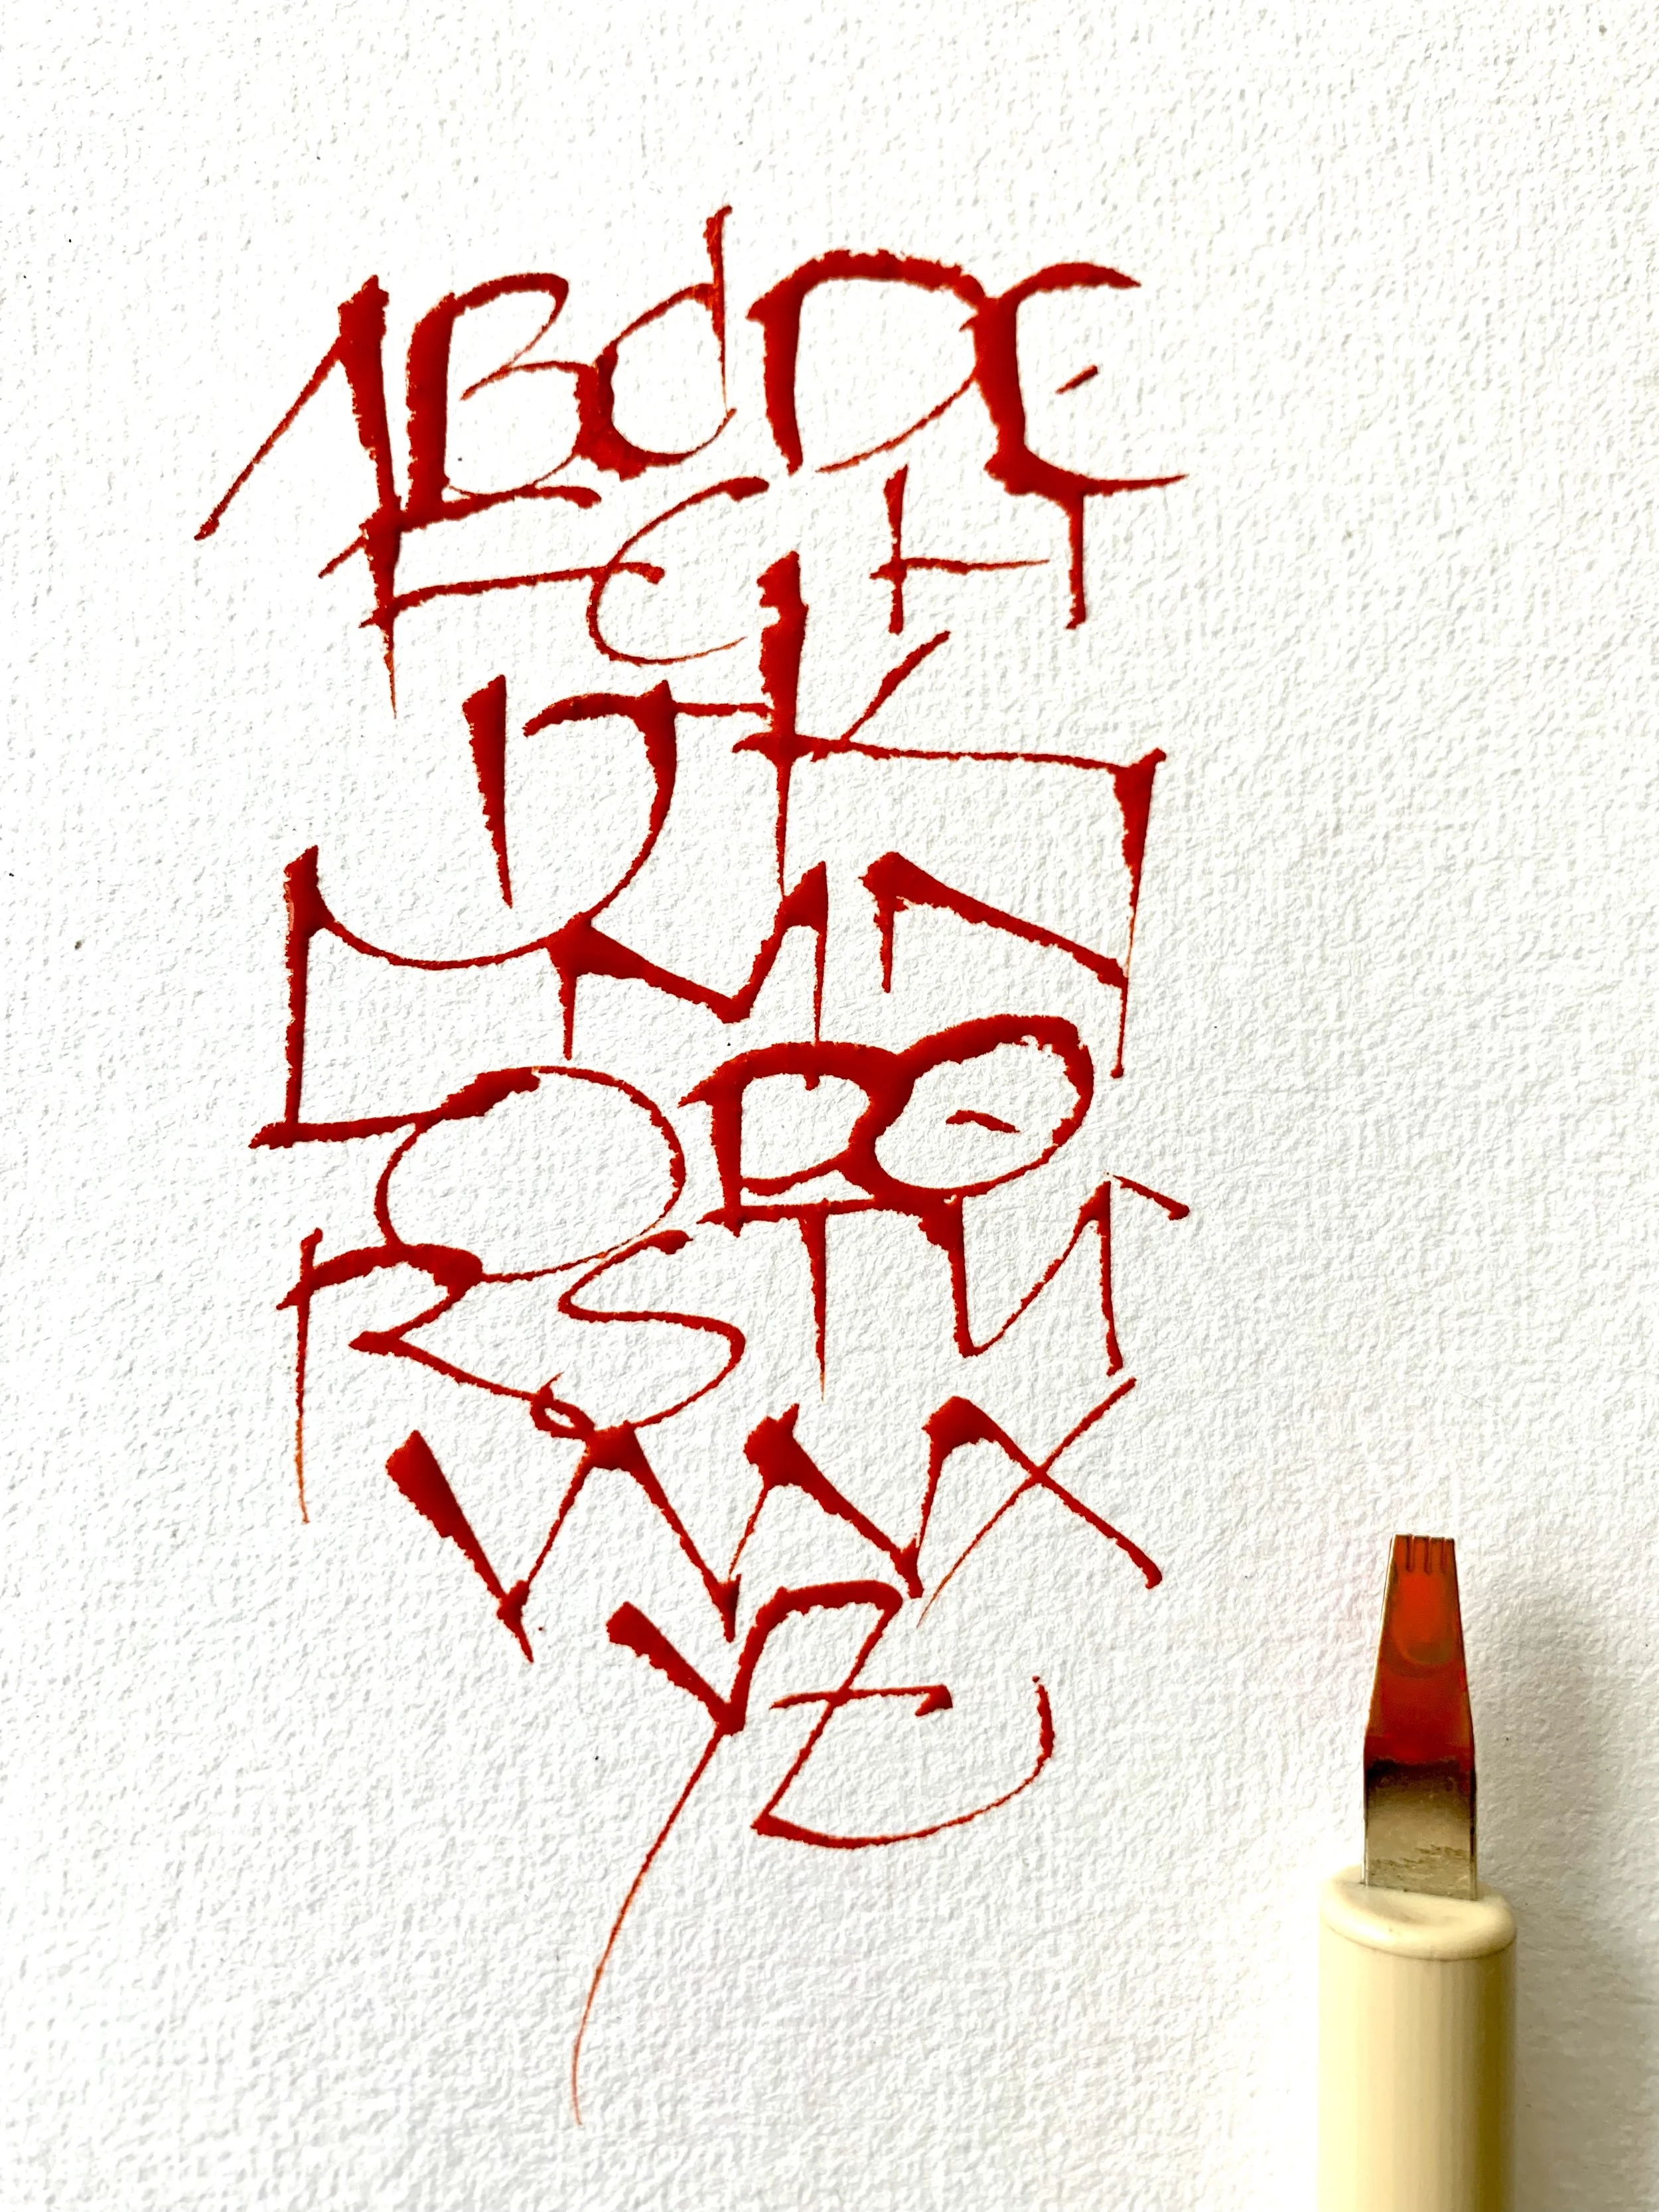 ABCDE
FGH
IJK
LMN
OPQ
RSTU
VWX
YZ